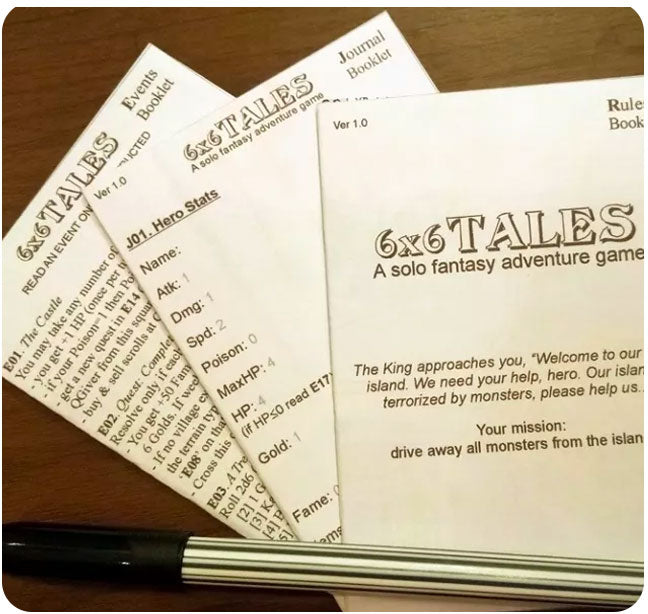 Events
Booklet
6x6 TALES
READ AN EVENT ON
ICTED
E01 The Castle
You may take any number o
- You get +1 HP (once per
- if your Poison=1 then Po
- get a new quest in E14
QGiver from this squa
- buy & sell scrolls at
E02. Quest Comple
Resolve only if each
- You get +50 Fam
6 Golds, if wee
- If no village ex
the terrain typ
'E08' on tha
- Cross this
E03. A Tr
Roll 2d6
[2] 1 G
[3] K
[4] P
Journal
Booklet
6x6 TALES
A solo fantasy adventure game
Ver 1.0
J01. Hero Stats
Name:
Atk: 1
Dmg: 1
Spd: 2
Poison: 0
MaxHP: 4
HP: 4
(if HP≤0 read E17
Gold: 1
Fame: 0
ems
Ver 1.0
Rule
Book
6x6 TALES
A solo fantasy adventure game
The King approaches you, “Welcome to our
island. We need your help, hero. Our islan
terrorized by monsters, please help us..
Your mission:
drive away all monsters from the islan